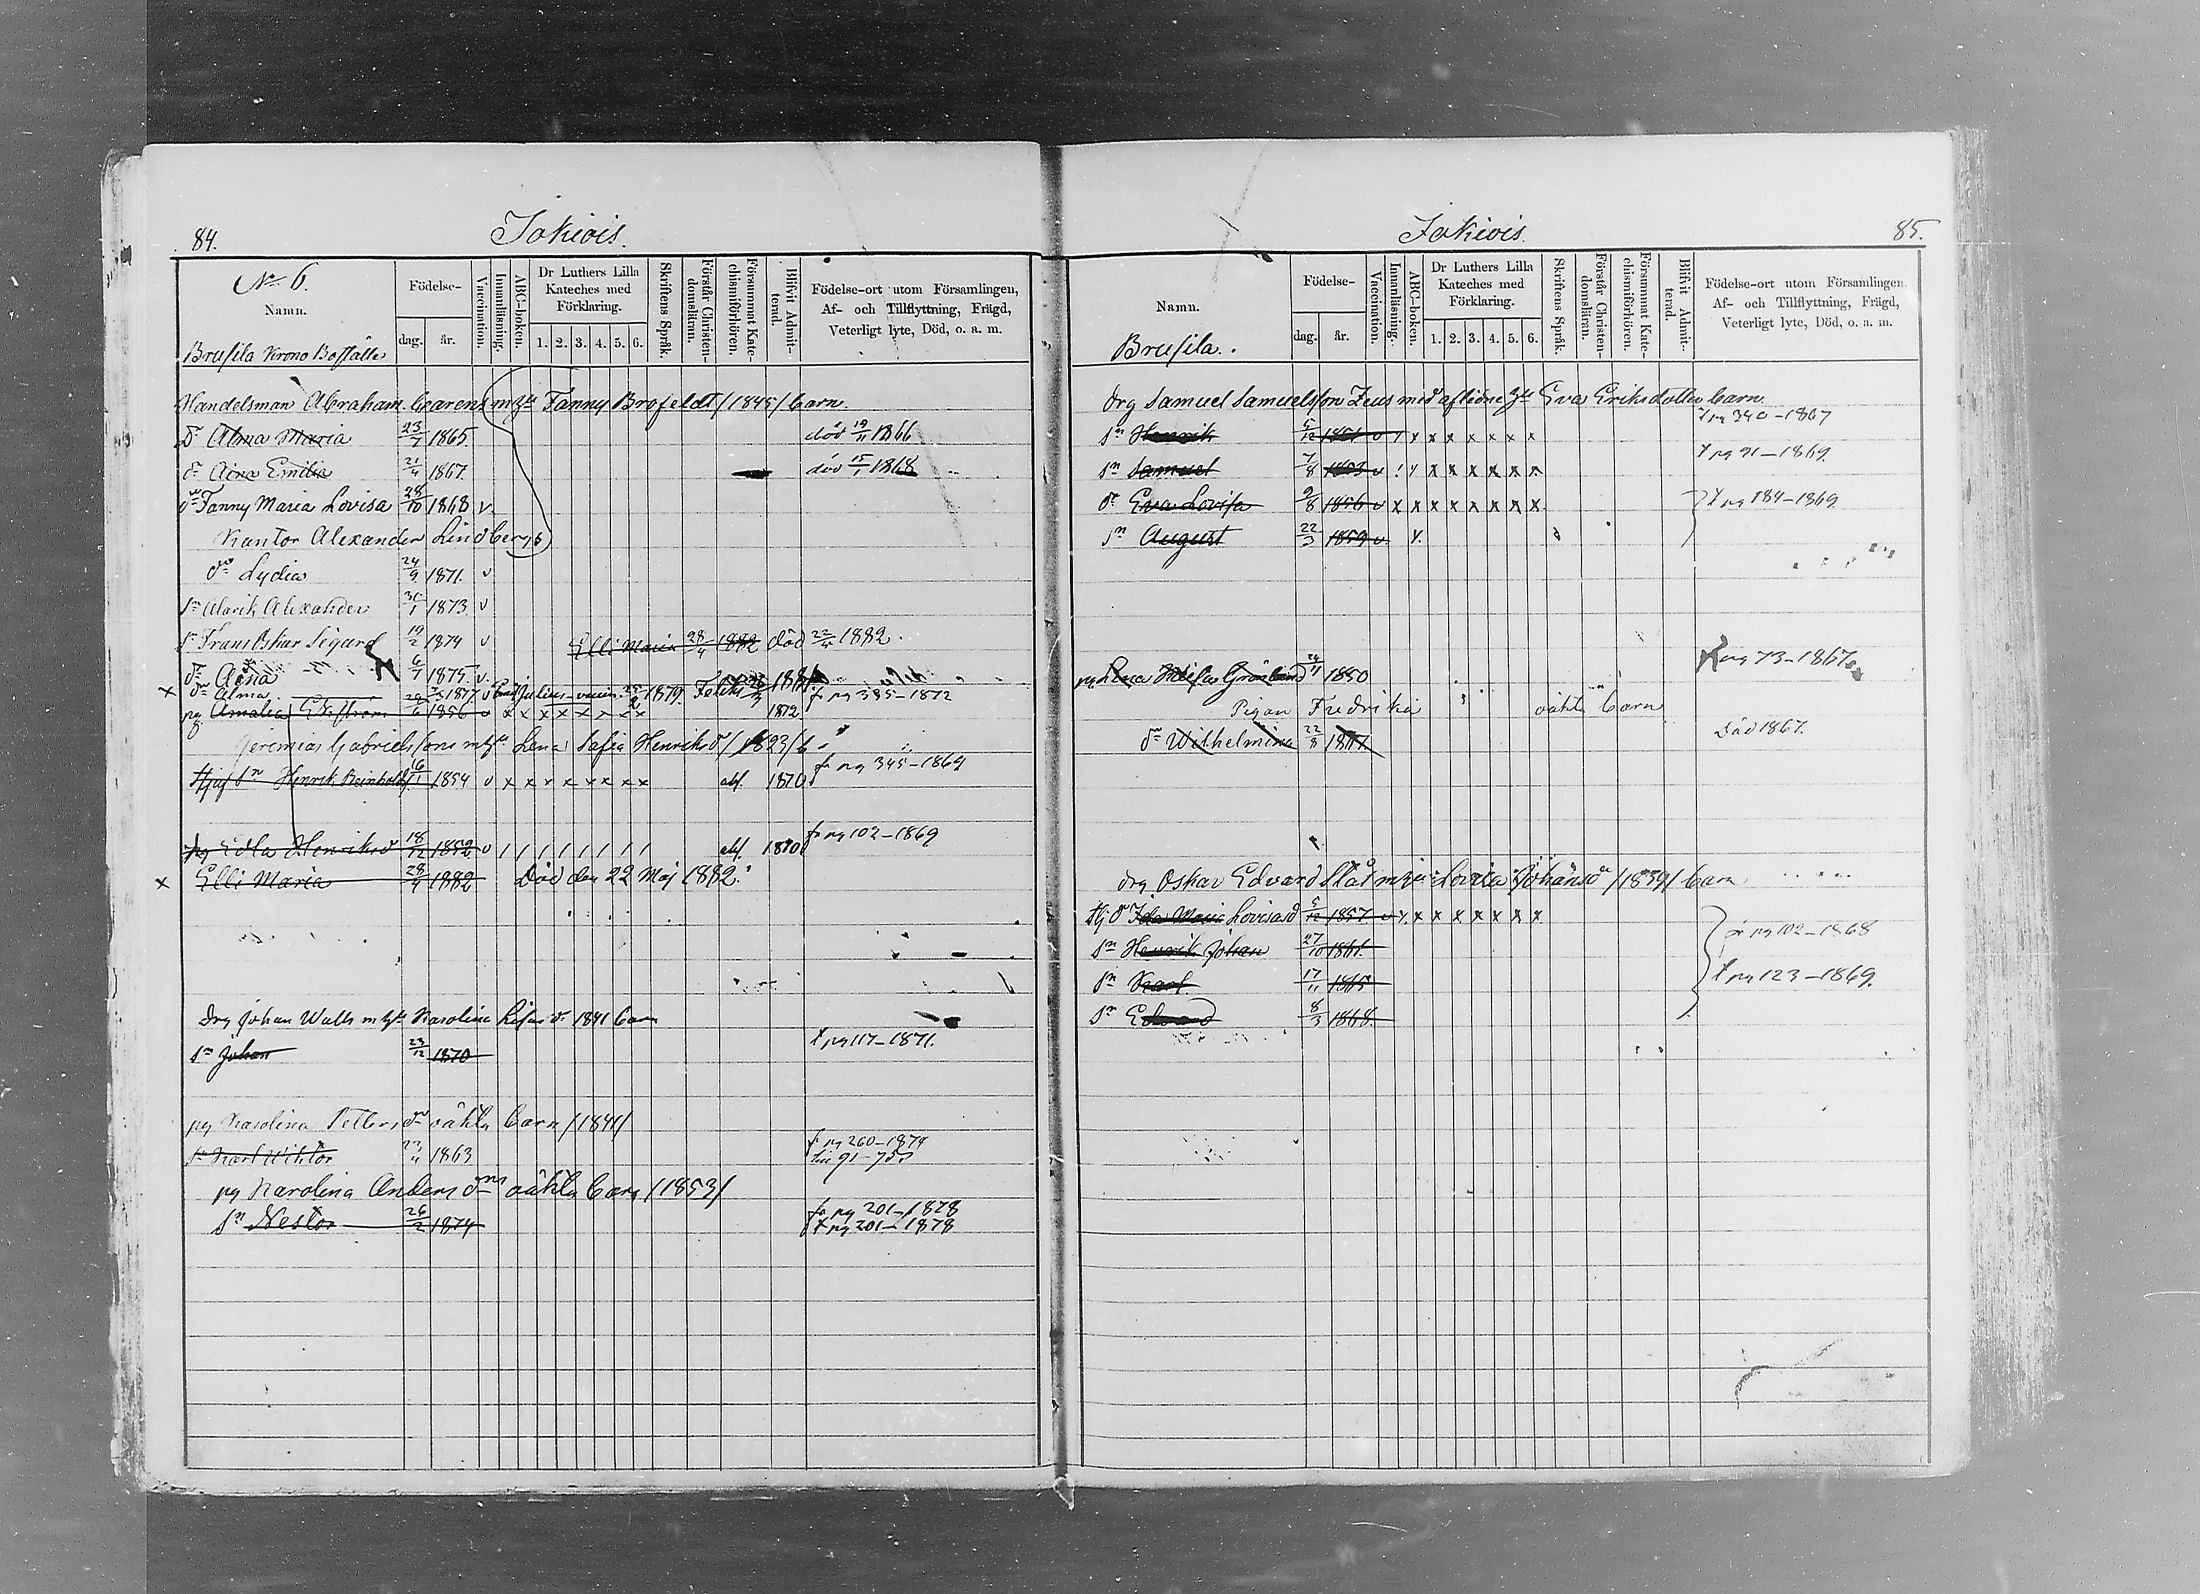 84.
Jokiois.
No 6.
Namn.
Födelse-
dag. år.
Vaccination.
Innanläsning.
ABC-boken.
Dr Luthers Lilla Kateches med Förklaring.
1. 2. 3. 4. 5. 6.
Skriftens Språk.
Förstår Christen-domsläran.
Försummat Kate-chismiförhören.
Blifvit Admit-terad.
Födelse-ort utom Församlingen, Af- och Tillflyttning, Frägd, Veterligt lyte, Död, o. a. m.
Brusila Krono Boställe
Handelsman Abraham barens m hu Fanny Brofeldt /1845/ barn.
dr Alma Maria 23/7 1865 död 19/11 1866
dr Aina Emilia 21/4 1867. död 15/1 1868
dr Fanny Maria Lovisa 28/10 1868 v
Kantor Alexander Lindbergs
dr Lydia 24/9 1871. v
sn Alarik Alexander 30/1 1873 v
sn Frans Oskar Sigard 19/2 1874 v Elli Maria 28/4 1882 död 22/5 1882.
dr Aina 6/7 1875 v.
x dr Alma 1877 v Julius 1879. Feliks 1881 fr pg 385-1872
pg Amalia Ekström 6 1856 v x x x x x x x x 1872
Jeremias Gabrielsson m hu Lena Safia Henriksd /1823/ b
sn Henrik Reinhold 16/1 1854 v x x x x x x x x abs. 1870 fr pg 345-1869
pg Edla Henriksd 18/12 1852 v / / / / / / / / abs. 1870 fr pg 102-1869
x Elli Maria 28/4 1882 Död den 22 Maj 1882.
Drg Johan Walls m hu Karolina d 1841 barn
sn Johan 23/12 1870 t pg 117-1871.
pg Karolina Petters dr oäkta barn /1841/
sn Karl Wiktor 1863 fr pg 260-1874
pg Karolina Anders dr oäkta barn /1853/
sn Nestor 26/2 1874 fr pg 201-1878
t pg 201-1878
Jokiois.
85.
Namn.
Födelse-
dag. år.
Vaccination.
Innanläsning.
ABC-boken.
Dr Luthers Lilla Kateches med Förklaring.
1. 2. 3. 4. 5. 6.
Skriftens Språk.
Förstår Christen-domsläran.
Försummat Kate-chismiförhören.
Blifvit Admit-terad.
Födelse-ort utom Församlingen, Af- och Tillflyttning, Frägd, Veterligt lyte, Död, o. a. m.
Brusila.
drg Samuel Samuelsson Zeus med aflidne hu Eva Eriksdotter barn
sn Henrik 5/12 1851 v t pg 340-1867
sn Samuel 7/8 1853 v t pg 91-1869.
dr Eva Lovisa 9/8 1856 v x x x x x x x x t pg 184-1869
sn August 22/3 1859 v
pg Lena Grönlund 1850 t pg 73-1867
Pigan Fredrika oäkta barn
dr Wilhelmina 22/8 1867. Död 1867.
drg Oskar Edvard Slät m hu Lovisa Johansd /1839/ barn
dr Ida Maria Lovisasd 5/12 1857 v
sn Henrik Johan 27/10 1861. fr pg 102-1868
sn Karl 17/11 1865 t pg 123-1869.
sn Edvard 8/3 1868.